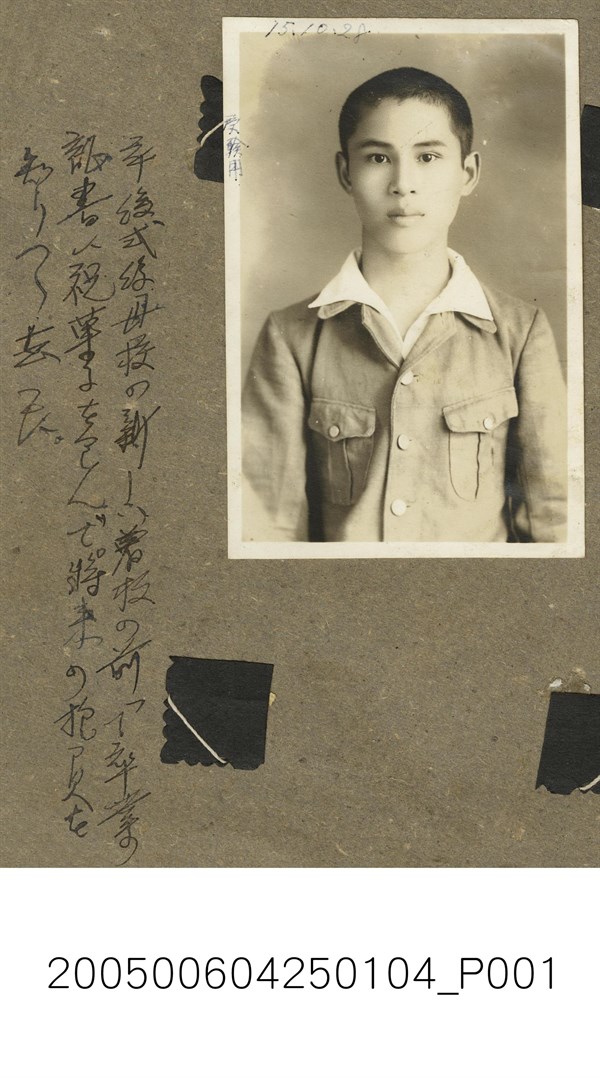 15.10.28
受験用
午後式後母校の新しい着板の前で卒業の
証書と祝菓子を包んで将来の抱負を
知りつゝ
200500604250104_P001